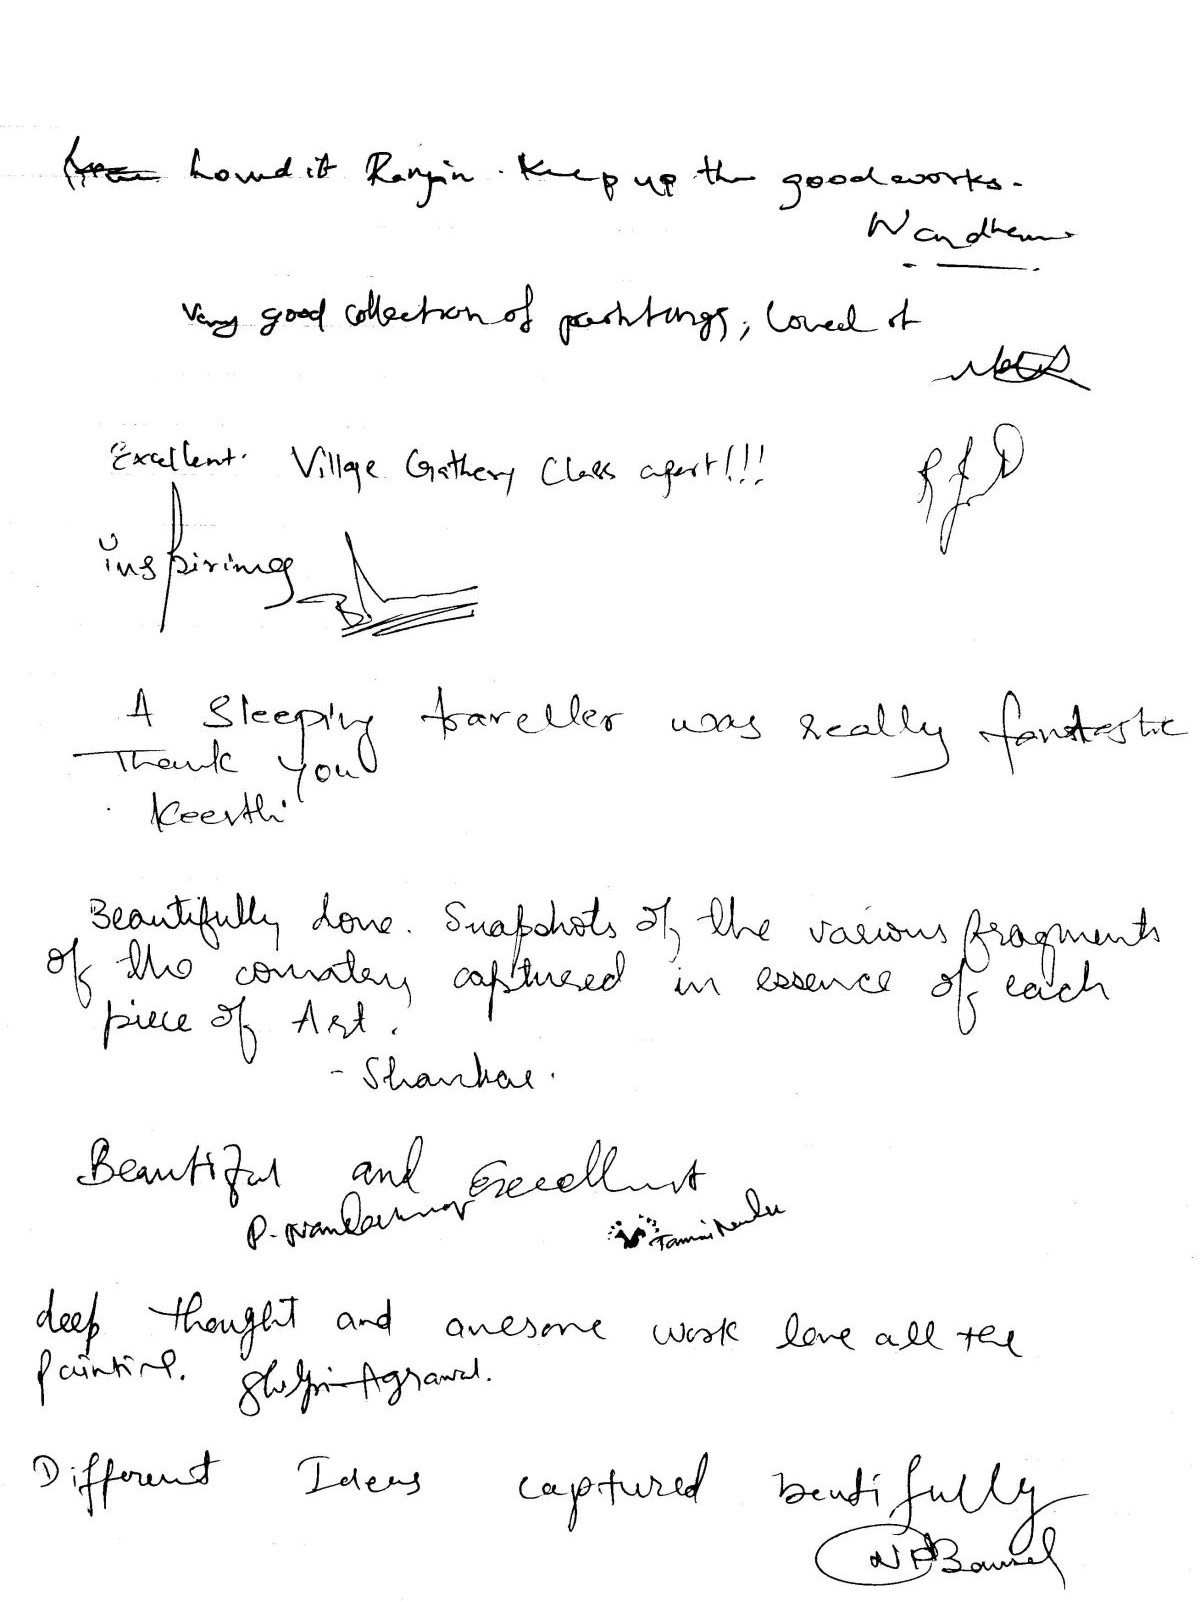 Loved it Ranjin. Keep up the good works.
Nandhan
Very good collection of paintings, loved it
Excellent. Village Gathery Class apart!!!
inspiring
A Sleeping traveller was really fantastic
Thank you
Keerthi
Beautifully done. Snapshots of the various fragments
of the country captured in essence of each
piece of Art.
- Shankar.
Beautiful and Excellent
P. Nandakumar
deep thought and awesome work love all the
painting. Shilpi Agrawal.
Different Ideas captured beutifully
NP Bansal